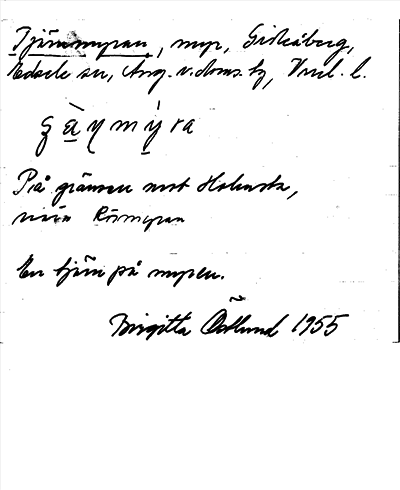 Tjärnmyran, myr, Gideåberg,
Edsele sn, Ång. v. doms. tg, Vnl. l.
På gränsen mot Holmsta,
nära Rörmyran
En tjärn på myren.
Birgitta Östlund 1955